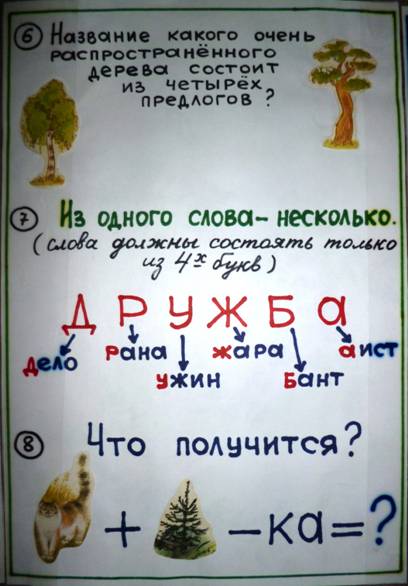 6 Название какого очень
распространённого
дерева состоит
из четырёх
предлогов?
7 Из одного слова – несколько.
(слова должны состоять только
из 4х букв)
ДРУЖБа
Дело рана ужин жара Бант аист
8 Что получится?
+ – ка = ?